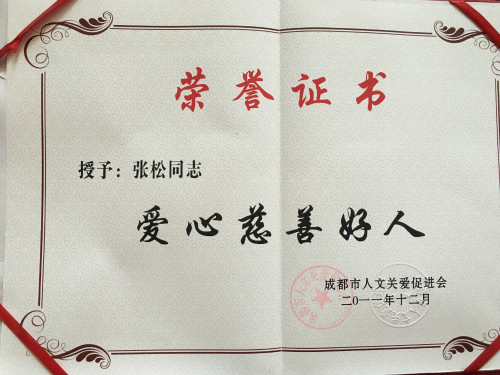 荣誉证书
授予：张松同志
爱心慈善好人
成都市人文关爱促进会
二〇一一年十二月